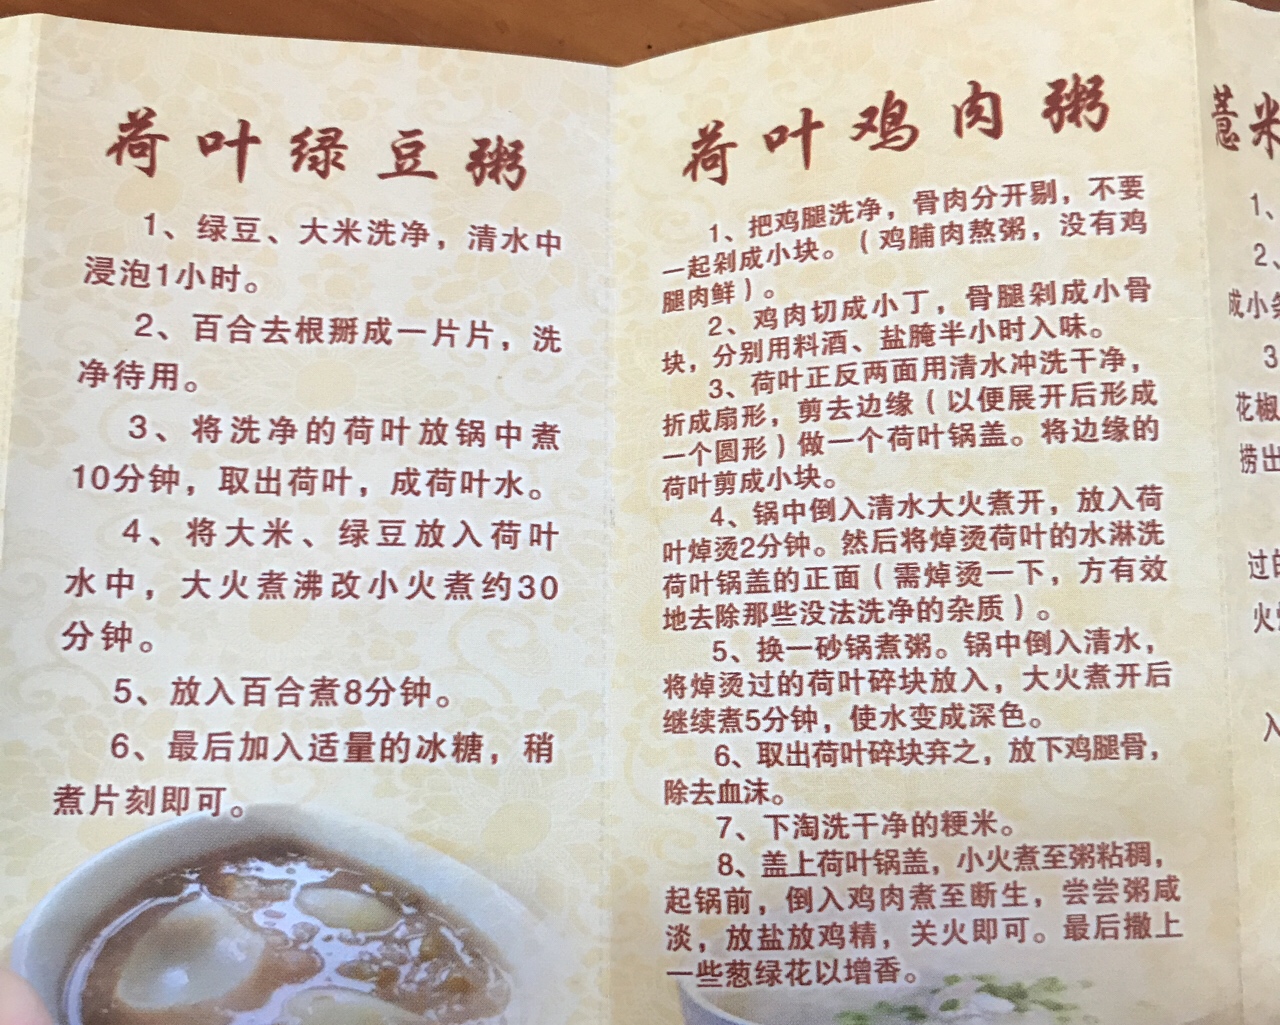 荷叶绿豆粥
1、绿豆、大米洗净，清水中
浸泡1小时。
2、百合去根掰成一片片，洗
净待用。
3、将洗净的荷叶放锅中煮
10分钟，取出荷叶，成荷叶水。
4、将大米、绿豆放入荷叶
水中，大火煮沸改小火煮约30
分钟。
5、放入百合煮8分钟。
6、最后加入适量的冰糖，稍
煮片刻即可。
荷叶鸡肉粥
1、把鸡腿洗净，骨肉分开剔，不要
一起剁成小块。（鸡脯肉熬粥，没有鸡
腿肉鲜）。
2、鸡肉切成小丁，骨腿剁成小骨
块，分别用料酒、盐腌半小时入味。
3、荷叶正反两面用清水冲洗干净，
折成扇形，剪去边缘（以便展开后形成
一个圆形）做一个荷叶锅盖。将边缘的
荷叶剪成小块。
4、锅中倒入清水大火煮开，放入荷
叶焯烫2分钟。然后将焯烫荷叶的水淋洗
荷叶锅盖的正面（需焯烫一下，方有效
地去除那些没法洗净的杂质）。
5、换一砂锅煮粥。锅中倒入清水，
将焯烫过的荷叶碎块放入，大火煮开后
继续煮5分钟，使水变成深色。
6、取出荷叶碎块弃之，放下鸡腿骨，
除去血沫。
7、下淘洗干净的粳米。
8、盖上荷叶锅盖，小火煮至粥粘稠，
起锅前，倒入鸡肉煮至断生，尝尝粥咸
淡，放盐放鸡精，关火即可。最后撒上
一些葱绿花以增香。
薏米
1、
2、
成小条
3
花椒
捞出
过的
火
入